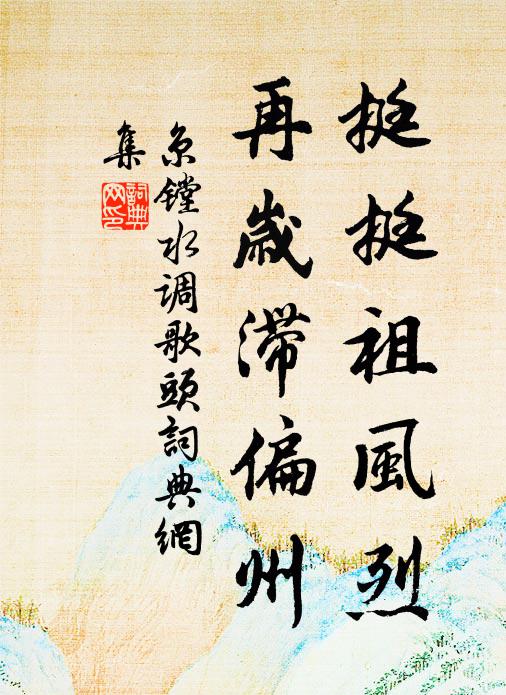 挺挺祖風烈
再歲滯偏州
京鏜水调歌頭詞典網
集
詞典
网印